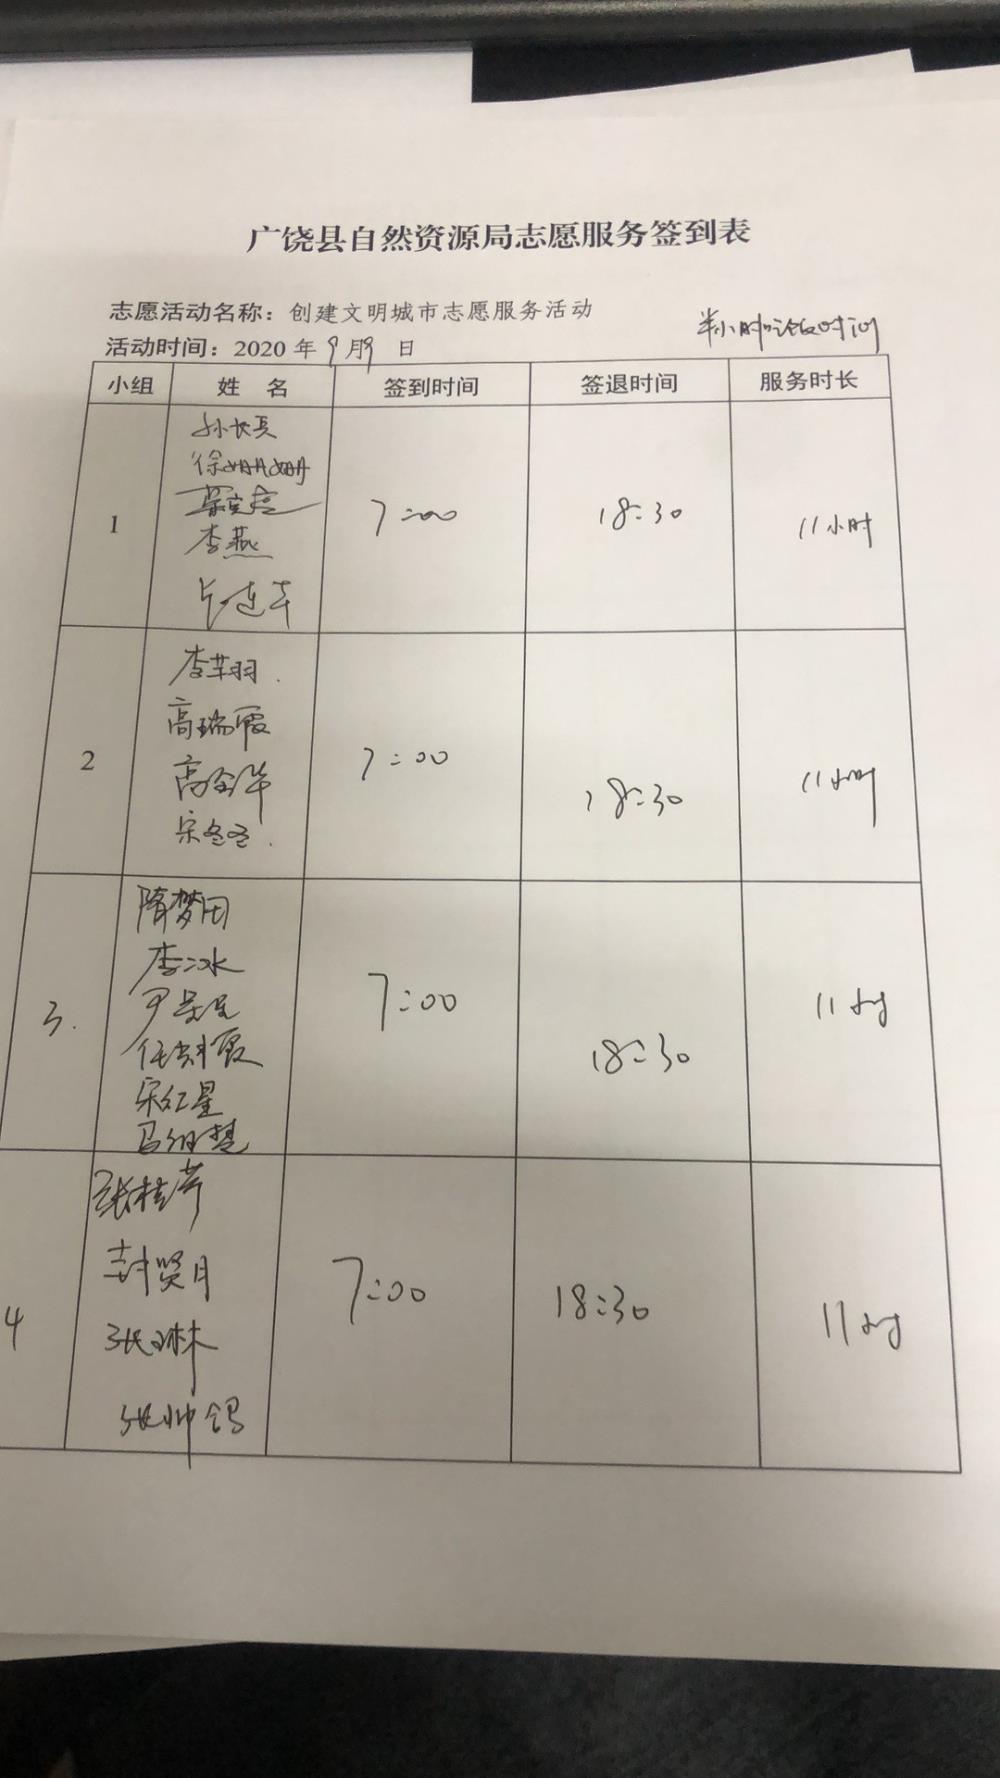 广饶县自然资源局志愿服务签到表
志愿活动名称：创建文明城市志愿服务活动
半小时吃饭时间
活动时间：2020 年 9 月 9 日
小组 姓 名 签到时间 签退时间 服务时长
孙长真
徐姗姗
李燕
1 7:00 18:30 11小时
李芊羽
高瑞霞
高全华
宋冬冬
2 7:00 18:30 11小时
隋梦田
李冰
3. 7:00 18:30 11小时
宋红星
张桂芹
封贤月
4 7:00 18:30 11小时
张琳
张帅